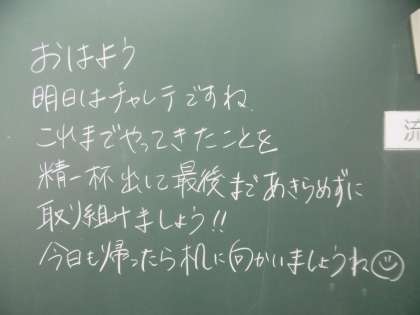 おはよう
明日はチャレテですね.
これまでやってきたことを
精一杯出して最後まであきらめずに
取り組みましょう!!
今日も帰ったら机に向かいましょうね
流